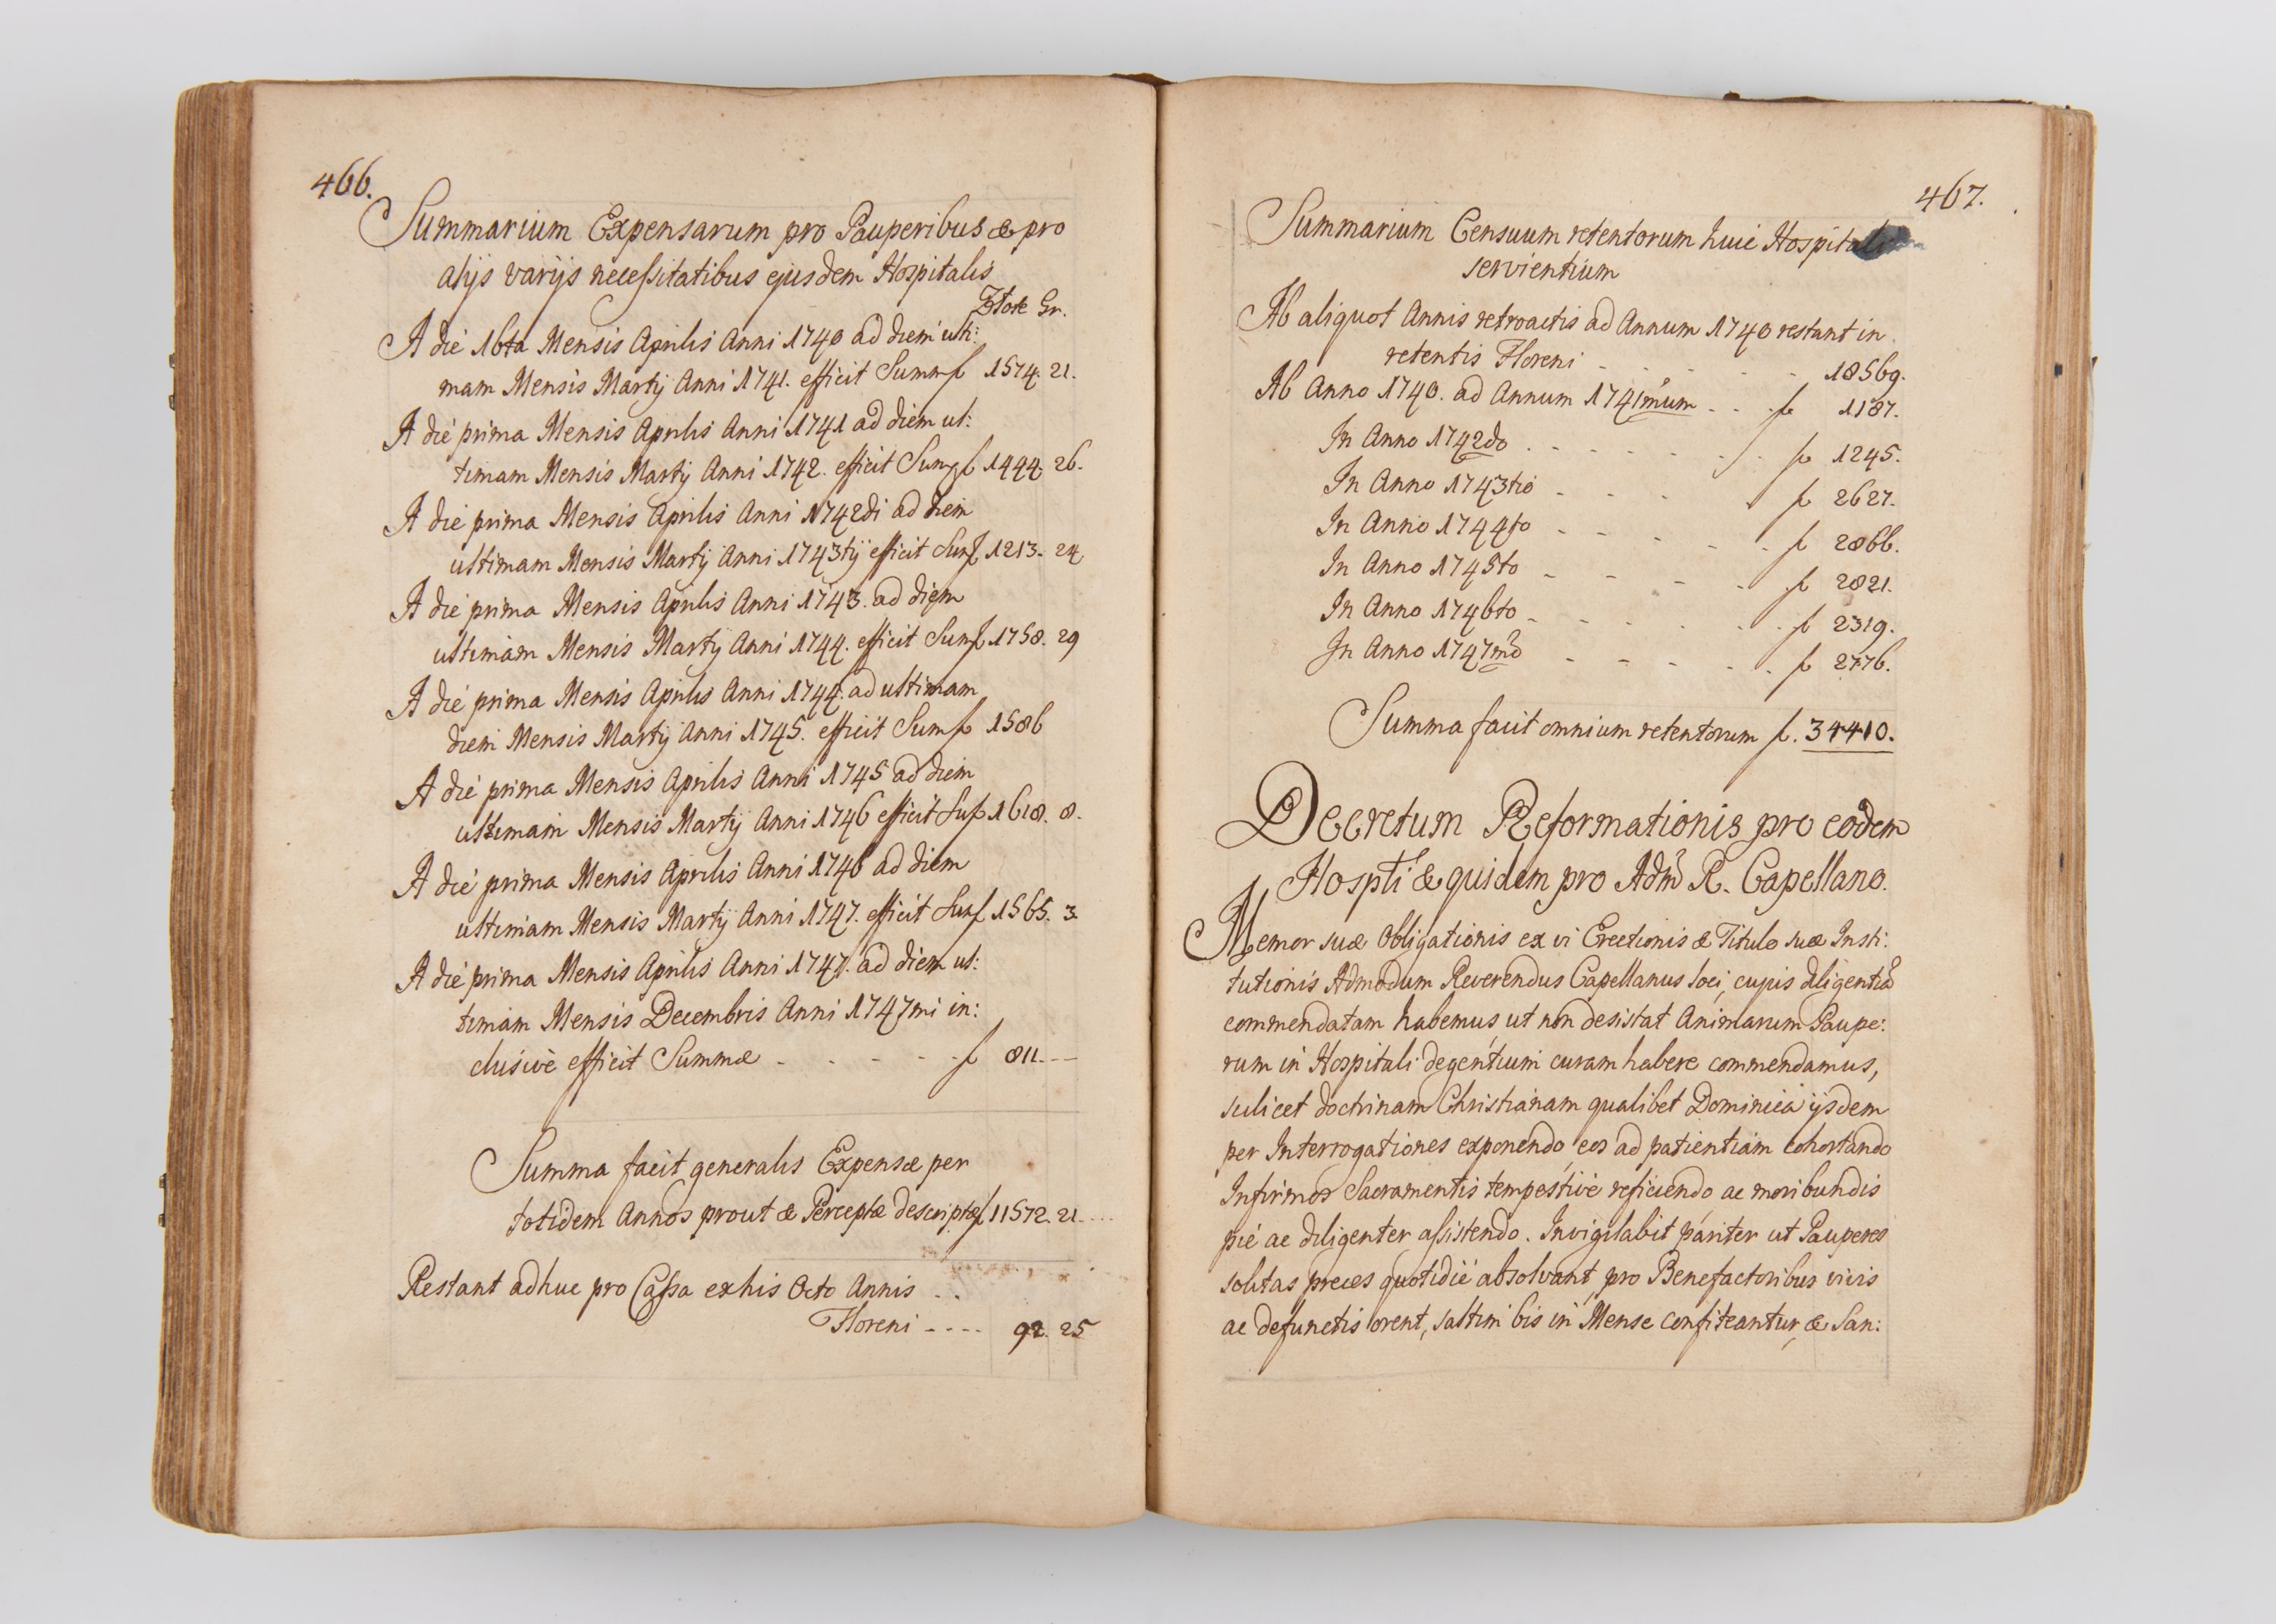 466.
Summarium Expensarum pro Pauperibus & pro
alijs varijs necessitatibus ejusdem Hospitalis
Złote Gr.
A die 16ta Mensis Aprilis Anni 1740 ad diem ulti:
mam Mensis Martij Anni 1741. efficit Summ f 1574. 21.
A die prima Mensis Aprilis Anni 1741 ad diem ul:
timam Mensis Martij Anni 1742. efficit Sum f 1444. 26.
A die prima Mensis Aprilis Anni 1742di ad diem
ultimam Mensis Martij Anni 1743tij efficit Sum f 1213. 24
A die prima Mensis Aprilis Anni 1743. ad diem
ultimam Mensis Martij Anni 1744. efficit Sum f 1758. 29
A die prima Mensis Aprilis Anni 1744. ad ultimam
diem Mensis Martij Anni 1745. efficit Sum f 1586
A die prima Mensis Aprilis Anni 1745 ad diem
ultimam Mensis Martij Anni 1746 efficit Su f 1618. 8.
A die prima Mensis Aprilis Anni 1746 ad diem
ultimam Mensis Martij Anni 1747. efficit Sum f 1565. 3.
A die prima Mensis Aprilis Anni 1747. ad diem ul:
timam Mensis Decembris Anni 1747mi in:
clusive efficit Summæ - - - - - f 811. --
Summa facit generalis Expensæ per
totidem Annos prout & Perceptæ descriptæ f 11572. 21.
Restant adhuc pro Cassa ex his Octo Annis . .
Floreni - - - - 92. 25
467.
Summarium Censuum retentorum huic Hospitali
servientium
Ab aliquot Annis retroactis ad Annum 1740 restant in
retentis Floreni - - - - - 18569.
Ab Anno 1740. ad Annum 1741mum - - f 1187.
In Anno 1742do - - - - - f 1245.
In Anno 1743tio - - - - f 2627.
In Anno 1744to - - - - - f 2866.
In Anno 1745to - - - - f 2821.
In Anno 1746to - - - - - f 2319.
In Anno 1747mo - - - - - f 2776.
Summa facit omnium retentorum f. 34410.
Decretum Reformationis pro eodem
Hospti & quidem pro Adm R. Capellano.
Memor suæ Obligationis ex vi Erectionis & Titulo suæ Insti:
tutionis Admodum Reverendus Capellanus loci, cujus diligentiã
commendatam habemus, ut non desistat Animarum Paupe:
rum in Hospitali degentium curam habere commendamus,
scilicet doctrinam Christianam qualibet Dominica ijsdem
per Interrogationes exponendo, eos ad patientiam cohortando
Infirmos Sacramentis tempestivè reficiendo, ac moribundis
pié ac diligenter assistendo. Invigilabit pariter ut Pauperes
solitas preces quotidié absolvant, pro Benefactoribus vivis
ac defunctis orent, saltim bis in Mense confiteantur, & San: